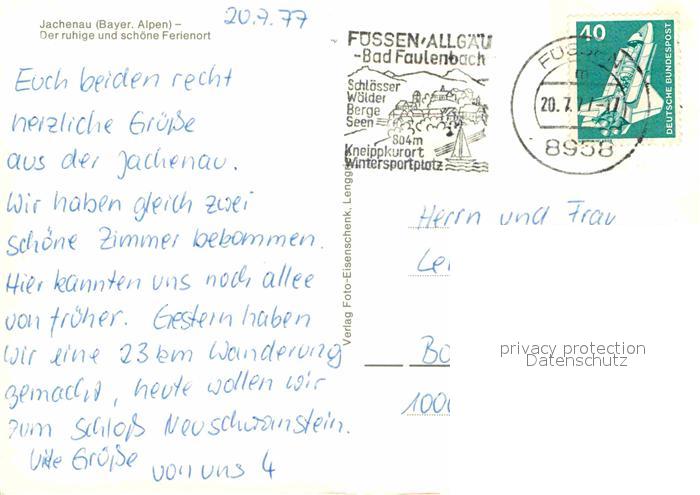 Jachenau (Bayer. Alpen) –
Der ruhige und schöne Ferienort
20.7.77
Euch beiden recht
herzliche Grüße
aus der Jachenau.
Wir haben gleich zwei
schöne Zimmer bekommen.
Hier kannten uns noch allee
von früher. Gestern haben
wir eine 23 km Wanderung
gemacht, heute wollen wir
zum Schloß Neuschwanstein.
Viele Grüße von uns 4
Verlag Foto-Eisenschenk, Lenggr
FÜSSEN/ALLGÄU
-Bad Faulenbach
Schlösser
Wälder
Berge
Seen
804m
Kneippkurort
Wintersportplatz
FÜSSEN
m
20.7.77-17
8958
40
DEUTSCHE BUNDESPOST
Herrn und Frau
privacy protection
Datenschutz